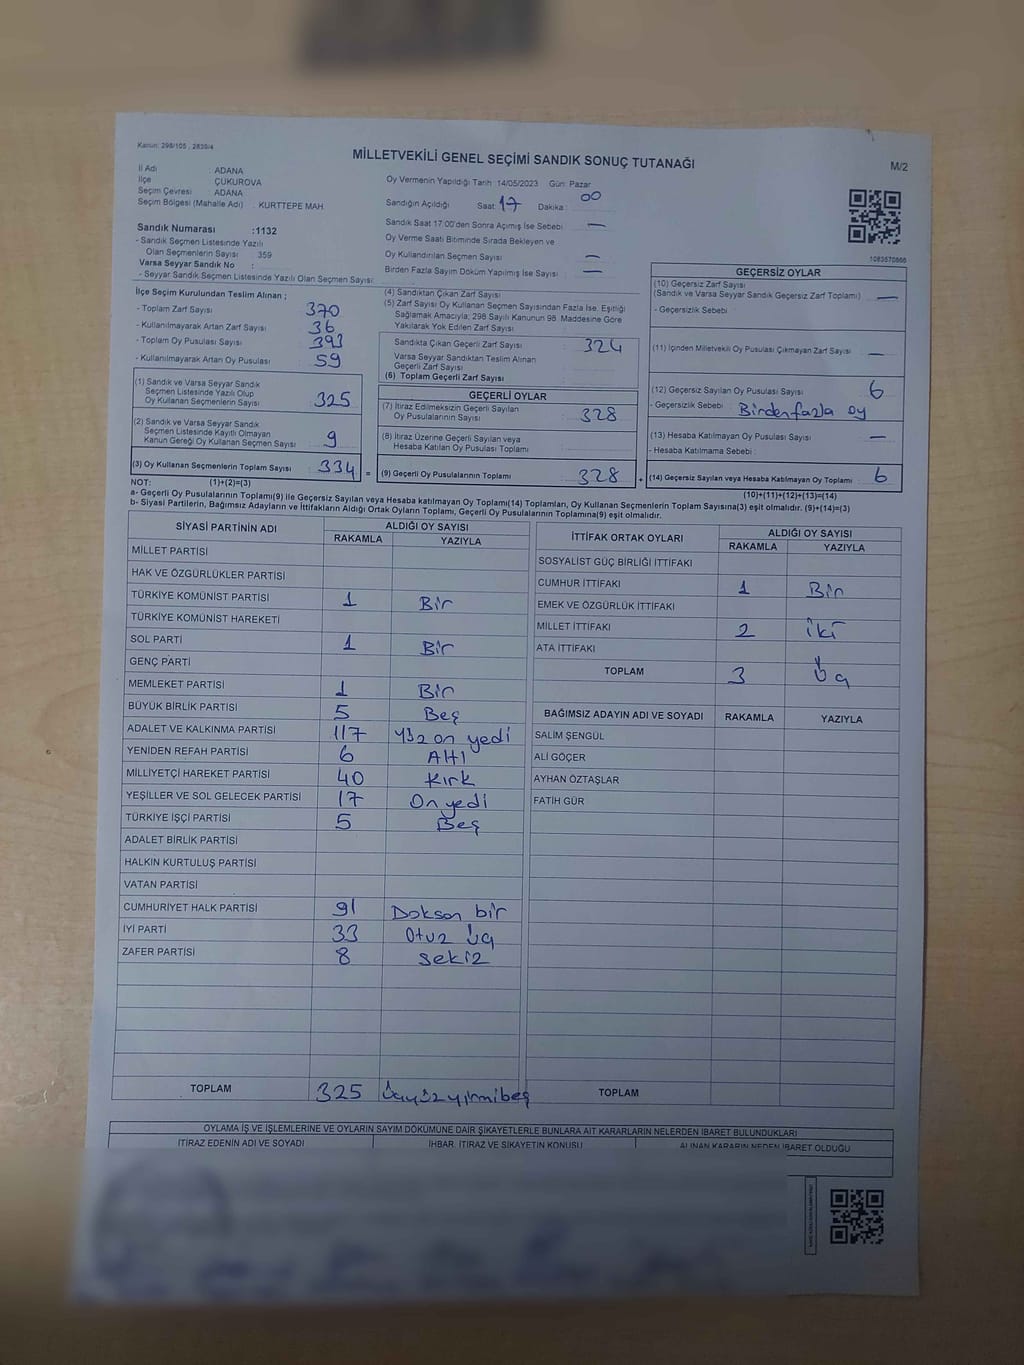 Kanun: 298/105 , 2839/4
MİLLETVEKİLİ GENEL SEÇİMİ SANDIK SONUÇ TUTANAĞI
M/2
İl Adı ADANA
İlçe ÇUKUROVA
Seçim Çevresi ADANA
Seçim Bölgesi (Mahalle Adı) : KURTTEPE MAH.
Sandık Numarası :1132
- Sandık Seçmen Listesinde Yazılı
Olan Seçmenlerin Sayısı : 359
Varsa Seyyar Sandık No :
- Seyyar Sandık Seçmen Listesinde Yazılı Olan Seçmen Sayısı:
Oy Vermenin Yapıldığı Tarih :14/05/2023 Gün: Pazar
Sandığın Açıldığı Saat: 17 Dakika : 00
Sandık Saat 17:00'den Sonra Açılmış İse Sebebi : —
Oy Verme Saati Bitiminde Sırada Bekleyen ve
Oy Kullandırılan Seçmen Sayısı : —
Birden Fazla Sayım Döküm Yapılmış İse Sayısı : —
1083570666
İlçe Seçim Kurulundan Teslim Alınan ;
- Toplam Zarf Sayısı : 370
- Kullanılmayarak Artan Zarf Sayısı : 36
- Toplam Oy Pusulası Sayısı : 393
- Kullanılmayarak Artan Oy Pusulası : 59
(1) Sandık ve Varsa Seyyar Sandık
Seçmen Listesinde Yazılı Olup
Oy Kullanan Seçmenlerin Sayısı : 325
(2) Sandık ve Varsa Seyyar Sandık
Seçmen Listesinde Kayıtlı Olmayan
Kanun Gereği Oy Kullanan Seçmen Sayısı : 9
(3) Oy Kullanan Seçmenlerin Toplam Sayısı : 334 =
(4) Sandıktan Çıkan Zarf Sayısı
(5) Zarf Sayısı Oy Kullanan Seçmen Sayısından Fazla İse, Eşitliği
Sağlamak Amacıyla; 298 Sayılı Kanunun 98. Maddesine Göre
Yakılarak Yok Edilen Zarf Sayısı
Sandıkta Çıkan Geçerli Zarf Sayısı : 324
Varsa Seyyar Sandıktan Teslim Alınan
Geçerli Zarf Sayısı :
(6) Toplam Geçerli Zarf Sayısı :
GEÇERLİ OYLAR
(7) İtiraz Edilmeksizin Geçerli Sayılan
Oy Pusulalarının Sayısı : 328
(8) İtiraz Üzerine Geçerli Sayılan veya
Hesaba Katılan Oy Pusulası Toplamı :
(9) Geçerli Oy Pusulalarının Toplamı : 328 +
GEÇERSİZ OYLAR
(10) Geçersiz Zarf Sayısı
(Sandık ve Varsa Seyyar Sandık Geçersiz Zarf Toplamı) : —
- Geçersizlik Sebebi :
(11) İçinden Milletvekili Oy Pusulası Çıkmayan Zarf Sayısı : —
(12) Geçersiz Sayılan Oy Pusulası Sayısı : 6
- Geçersizlik Sebebi : Birden fazla oy
(13) Hesaba Katılmayan Oy Pusulası Sayısı : —
- Hesaba Katılmama Sebebi :
(14) Geçersiz Sayılan veya Hesaba Katılmayan Oy Toplamı : 6
NOT: (1)+(2)=(3)
(10)+(11)+(12)+(13)=(14)
a- Geçerli Oy Pusulalarının Toplamı(9) ile Geçersiz Sayılan veya Hesaba katılmayan Oy Toplamı(14) Toplamları, Oy Kullanan Seçmenlerin Toplam Sayısına(3) eşit olmalıdır. (9)+(14)=(3)
b- Siyasi Partilerin, Bağımsız Adayların ve İttifakların Aldığı Ortak Oyların Toplamı, Geçerli Oy Pusulalarının Toplamına(9) eşit olmalıdır.
SİYASİ PARTİNİN ADI ALDIĞI OY SAYISI
RAKAMLA YAZIYLA
MİLLET PARTİSİ
HAK VE ÖZGÜRLÜKLER PARTİSİ
TÜRKİYE KOMÜNİST PARTİSİ 1 Bir
TÜRKİYE KOMÜNİST HAREKETİ
SOL PARTİ 1 Bir
GENÇ PARTİ
MEMLEKET PARTİSİ 1 Bir
BÜYÜK BİRLİK PARTİSİ 5 Beş
ADALET VE KALKINMA PARTİSİ 117 Yüz on yedi
YENİDEN REFAH PARTİSİ 6 Altı
MİLLİYETÇİ HAREKET PARTİSİ 40 Kırk
YEŞİLLER VE SOL GELECEK PARTİSİ 17 On yedi
TÜRKİYE İŞÇİ PARTİSİ 5 Beş
ADALET BİRLİK PARTİSİ
HALKIN KURTULUŞ PARTİSİ
VATAN PARTİSİ
CUMHURİYET HALK PARTİSİ 91 Doksan bir
İYİ PARTİ 33 Otuz üç
ZAFER PARTİSİ 8 sekiz
TOPLAM 325 Üçyüzyirmibeş
İTTİFAK ORTAK OYLARI ALDIĞI OY SAYISI
RAKAMLA YAZIYLA
SOSYALİST GÜÇ BİRLİĞİ İTTİFAKI
CUMHUR İTTİFAKI 1 Bir
EMEK VE ÖZGÜRLÜK İTTİFAKI
MİLLET İTTİFAKI 2 iki
ATA İTTİFAKI
TOPLAM 3 Üç
BAĞIMSIZ ADAYIN ADI VE SOYADI RAKAMLA YAZIYLA
SALİM ŞENGÜL
ALİ GÖÇER
AYHAN ÖZTAŞLAR
FATİH GÜR
TOPLAM
OYLAMA İŞ VE İŞLEMLERİNE VE OYLARIN SAYIM DÖKÜMÜNE DAİR ŞİKAYETLERLE BUNLARA AİT KARARLARIN NELERDEN İBARET BULUNDUKLARI
İTİRAZ EDENİN ADI VE SOYADI İHBAR, İTİRAZ VE ŞİKAYETİN KONUSU ALINAN KARARIN NEDEN İBARET OLDUĞU